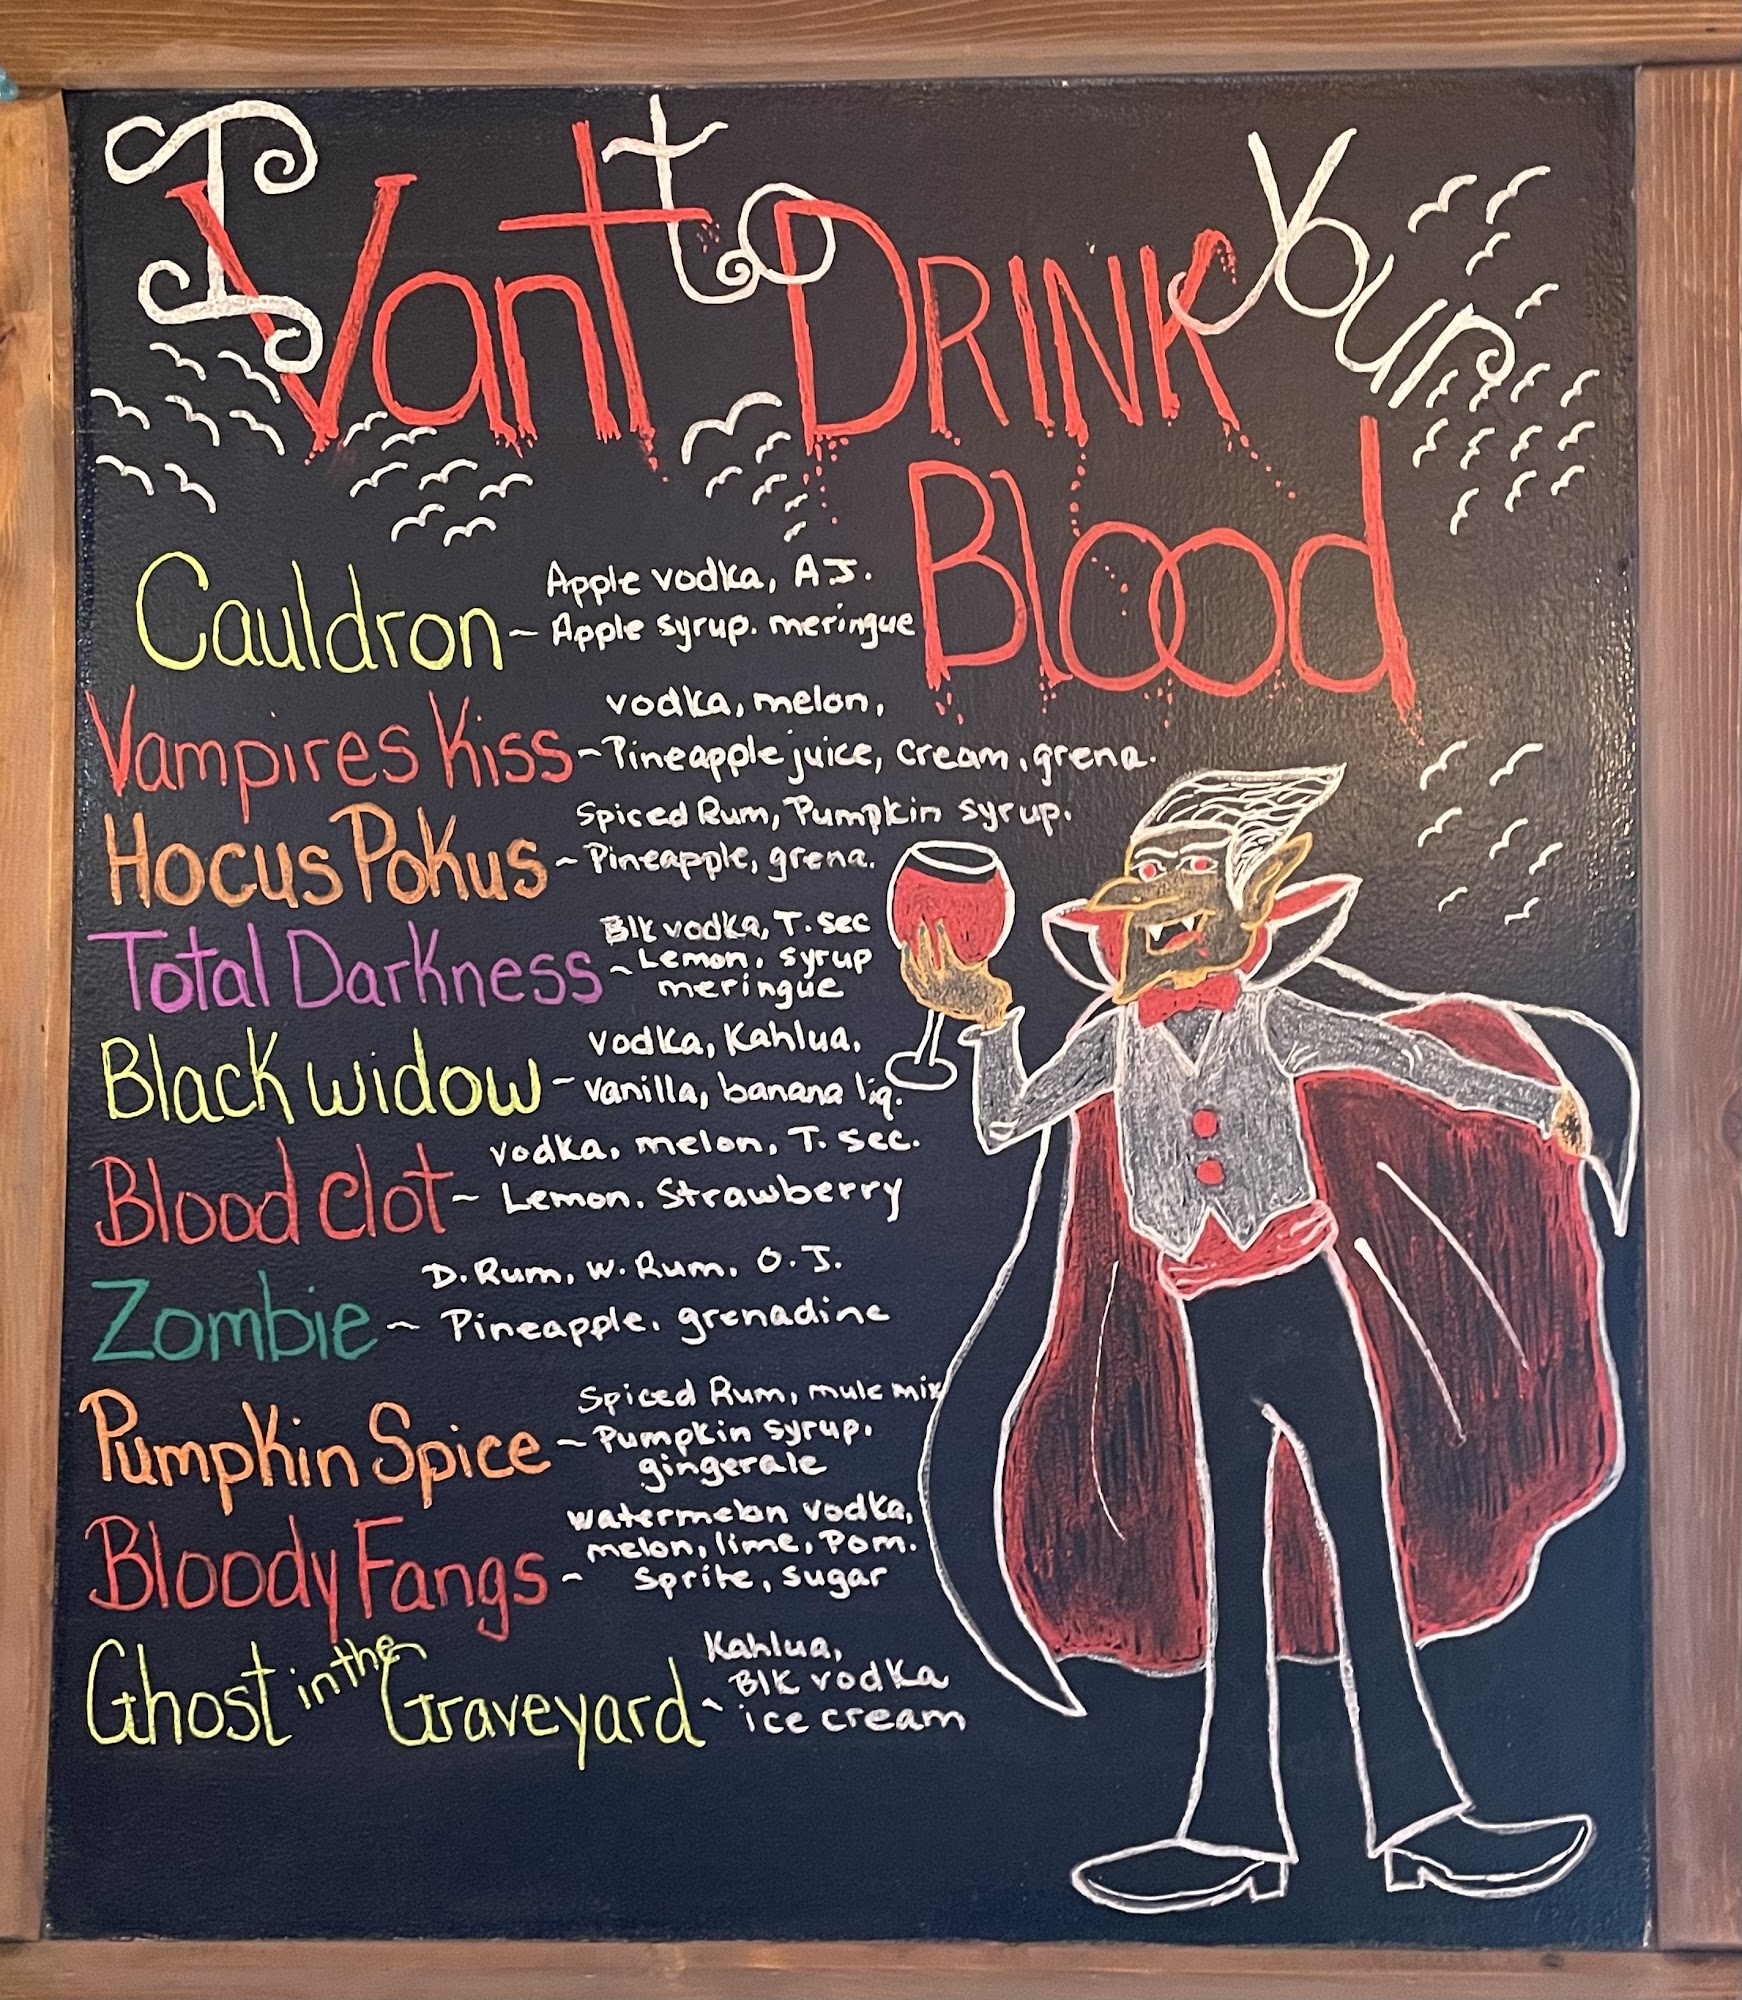 I Vant to DRINK Your
Blood
Apple vodka, A.J.
Cauldron ~ Apple syrup. meringue
vodka, melon,
Vampires Kiss ~ Pineapple juice, cream, grena.
Spiced Rum, Pumpkin syrup.
Hocus Pokus ~ Pineapple, grena.
Blk vodka, T. sec
Total Darkness ~ Lemon, syrup
meringue
vodka, Kahlua,
Black widow ~ vanilla, banana liq.
vodka, melon, T. sec.
Blood clot ~ Lemon. Strawberry
D. Rum, W. Rum, O.J.
Zombie ~ Pineapple. grenadine
Spiced Rum, mule mix
Pumpkin Spice ~ Pumpkin syrup.
gingerale
watermelon vodka,
melon, lime, Pom.
Bloody Fangs ~ Sprite, sugar
Kahlua,
Ghost in the Graveyard ~ Blk vodka
ice cream